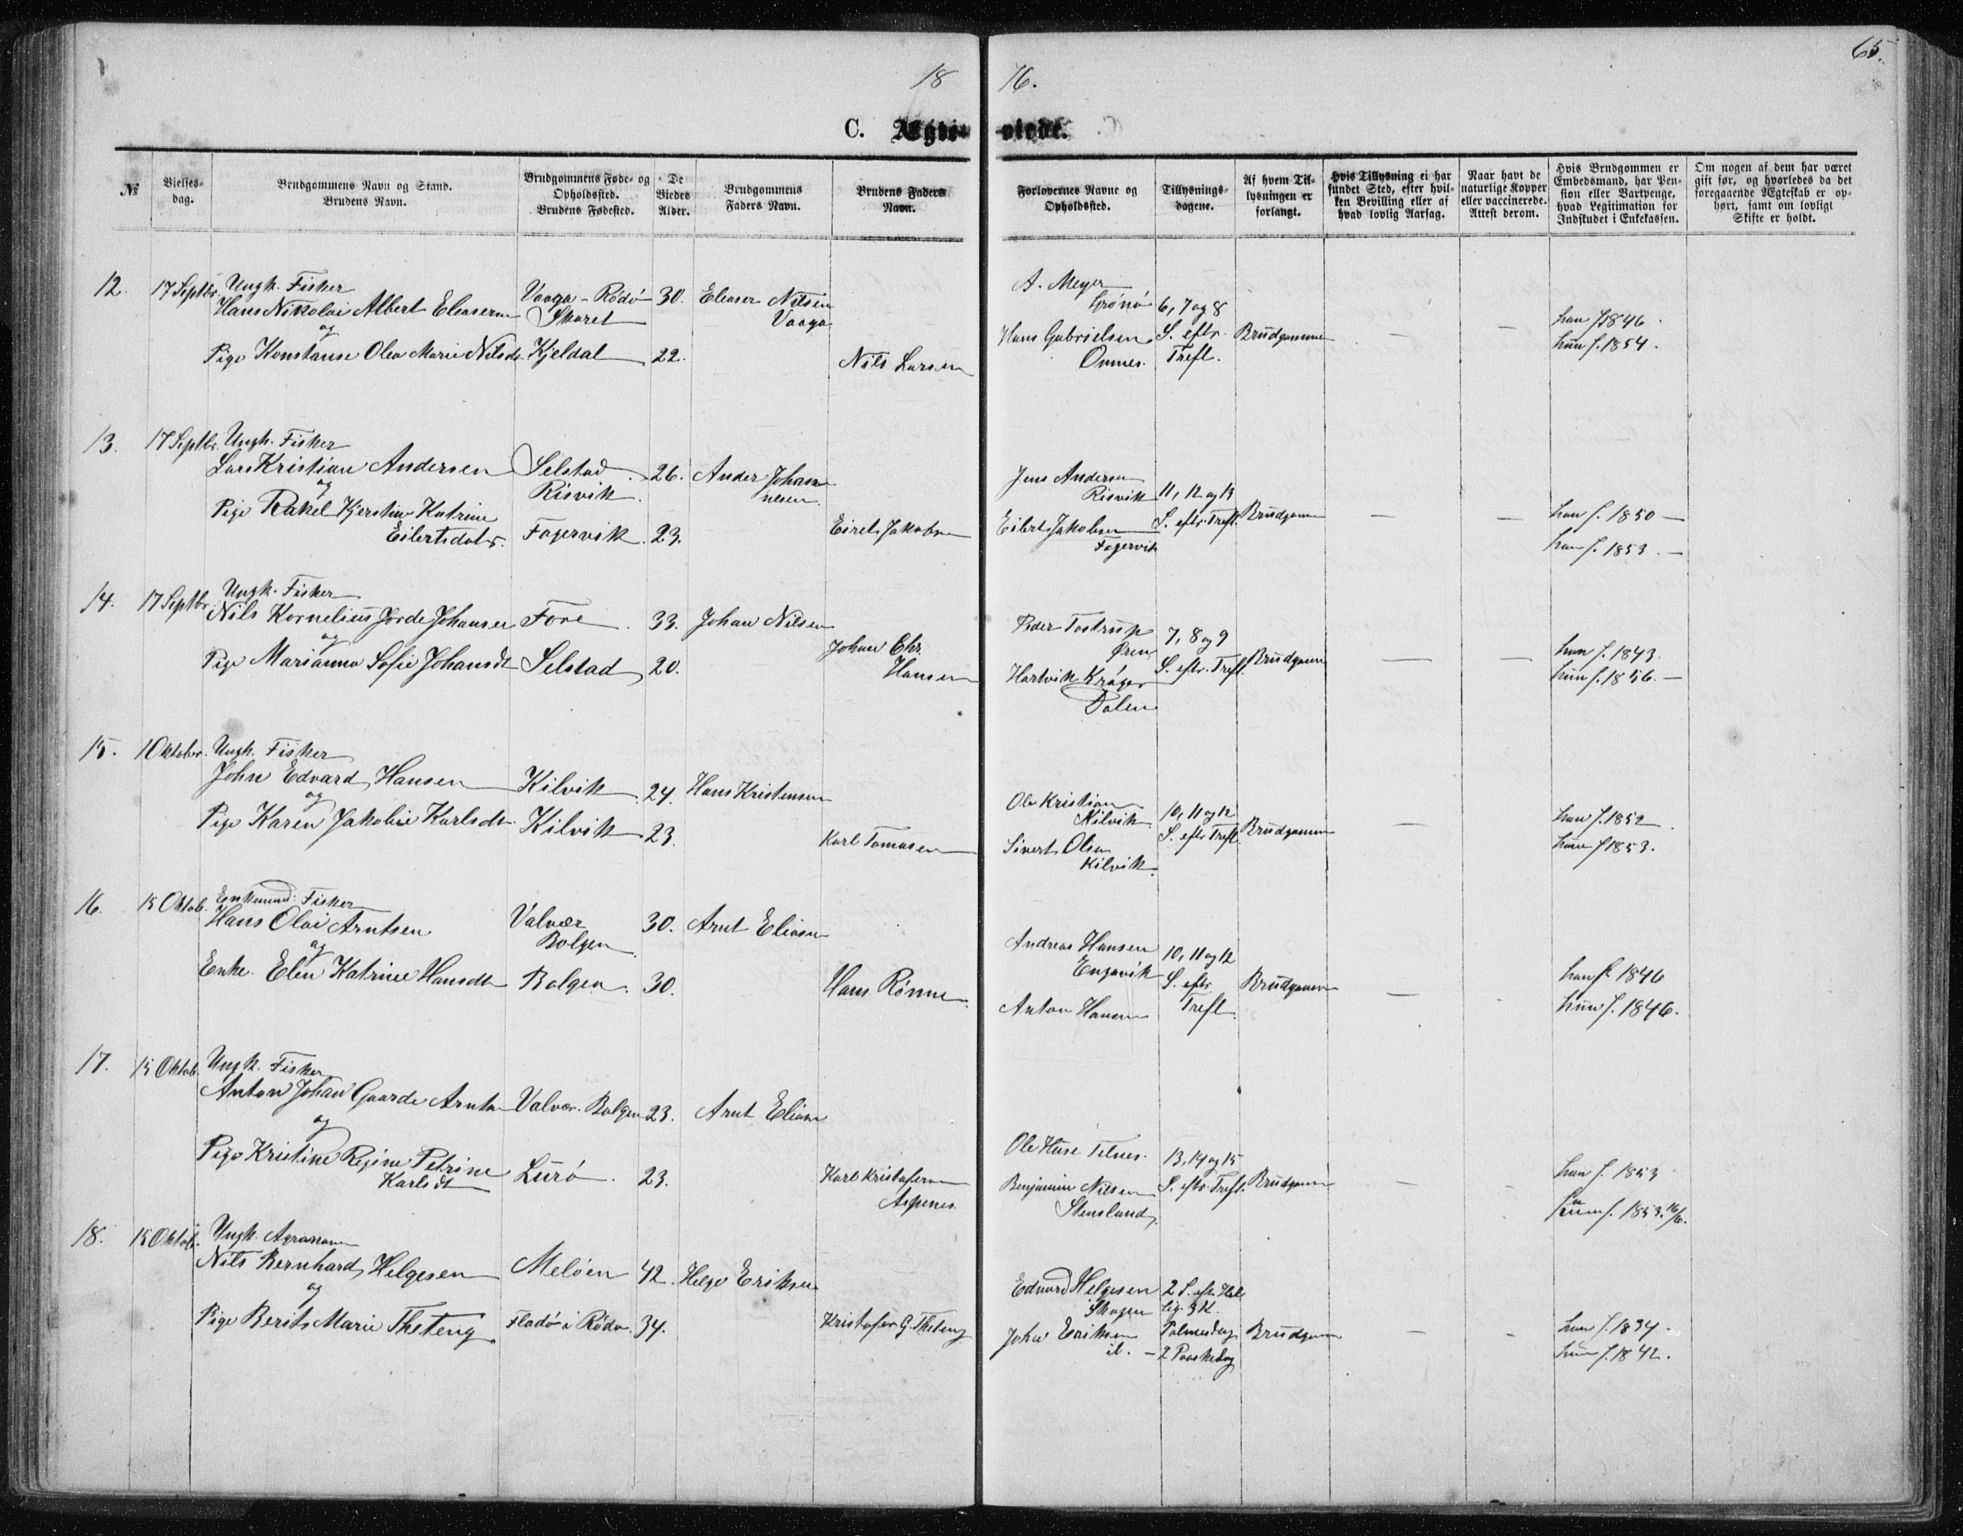 65.
18 76.
C. Ægte- viede.
№
Vielses-
dag.
Brudgommens Navn og Stand.
Brudens Navn.
Brudgommens Føde- og
Opholdssted.
Brudens Fødested.
De
Viedes
Alder.
Brudgommens
Faders Navn.
Brudens Faders
Navn.
Forlovernes Navne og
Opholdssted.
Tillysnings-
dagene.
Af hvem Til-
lysningen er
forlangt.
Hvis Tillysning ei har
fundet Sted, efter hvil-
ken Bevilling eller af
hvad lovlig Aarsag.
Naar havt de
naturlige Kopper
eller vaccinerede.
Attest derom.
Hvis Brudgommen er
Embedsmand, har Pen-
sion eller Vartpenge,
hvad Legitimation for
Indskudet i Enkekassen.
Om nogen af dem har været
gift før, og hvorledes da det
foregaaende Ægteskab er op-
hørt, samt om lovligt
Skifte er holdt.
12. 17 Septbr. Ungk. Fisker
Hans Nikolai Albert Eleasersen
og
Pige Konstanse Olea Marie Nilsdt.
Vaaga - Rödö
Skaret
Kjeldal
30.
22.
Eleaser Nilsen
Vaaga
Nils Larsen
A. Meyer
Grönö
Hans Gabrielsen
Onnes.
6, 7 og 8
S. eftr.
Trefl.
Brudgommen
—
—
han f 1846.
hun f. 1854.
13. 17 Septbr. Ungk. Fisker
Lars Kristian Andersen
og
Pige Rakel Kjerstine Katrine
Eilertsdatr.
Selstad
Risvik.
Fagervik
26.
23.
Ander Johan-
nesen
Eilert Jakobsen
Jens Andersen
Risvik
Eilert Jakobsen
Fagervik
11, 12 og 13
S. eftr. Trefl.
Brudgommen
—
—
han f. 1850 —
hun f. 1853. —
14. 17 Septbr. Ungk. Fisker
Nils Kornelius Jorde Johansen
og
Pige Marianna Sofie Johansdt
Fore
Selstad
33.
20.
Johan Nilsen
Johan Chr.
Hansen
Peder Tostrup
Ören
Hartvik Kröger
Dalen
7, 8 og 9
S. eftr. Trefl.
Brudgommen
—
—
han f. 1843.
hun f. 1856. —
15. 1 Oktober. Ungk. Fisker
John Edvard Hansen
og
Pige Karen Jakobine Karlsdt.
Kilvik
Kilvik
24.
23.
Hans Kristensen
Karl Tomasen
Ole Kristian
Kilvik
Sivert Olsen
Kilvik.
10, 11 og 12
S. eftr Trefl.
Brudgommen
—
—
han f. 1852.
hun f 1853.
16. 15 Oktob. Enkemand. Fisker
Hans Olai Arntsen
og
Enke. Elen Katrine Hansdt
Valvær
Bolgen
Bolgen.
30.
30.
Arnt Eliasen
Hans Rönne
Andreas Hansen
Engavik
Anton Hansen
10, 11 og 12
S. eftr
Trefl.
Brudgommen
—
-
han f. 1846
hun f. 1846.
17. 15 Oktob. Ungk. Fisker
Anton Johan Gaarde Arntsen
og
Pige Kristine Regine Petrine
Karlsdt
Valvær. Bolgen
Lurö
23.
23.
Arnt Eliasen
Karl Kristofersen
Aspenes.
Ole Huse Telnes.
Benjamin Nilsen
Stensland.
13, 14 og 15
S. eftr. Trefl.
Brudgommen
-
-
han f. 1853
hun f. 1853. 16/6.
18. 15 Oktob. Ungk. Agronom
Nils Bernhard Helgesen
og
Pige Berits Marie Theteng
Melöen
Fladö i Rödö
42.
34.
Helge Eriksen
Kristofer G. Theteng
Edvard Helgesen
Skagen
John Eriksen
it.
2 S. eftr Hel
lig. 3 K.
Palmesdag
- 2 Paaskedag
Brudgommen
-
-
han f. 1834.
hun f. 1842.